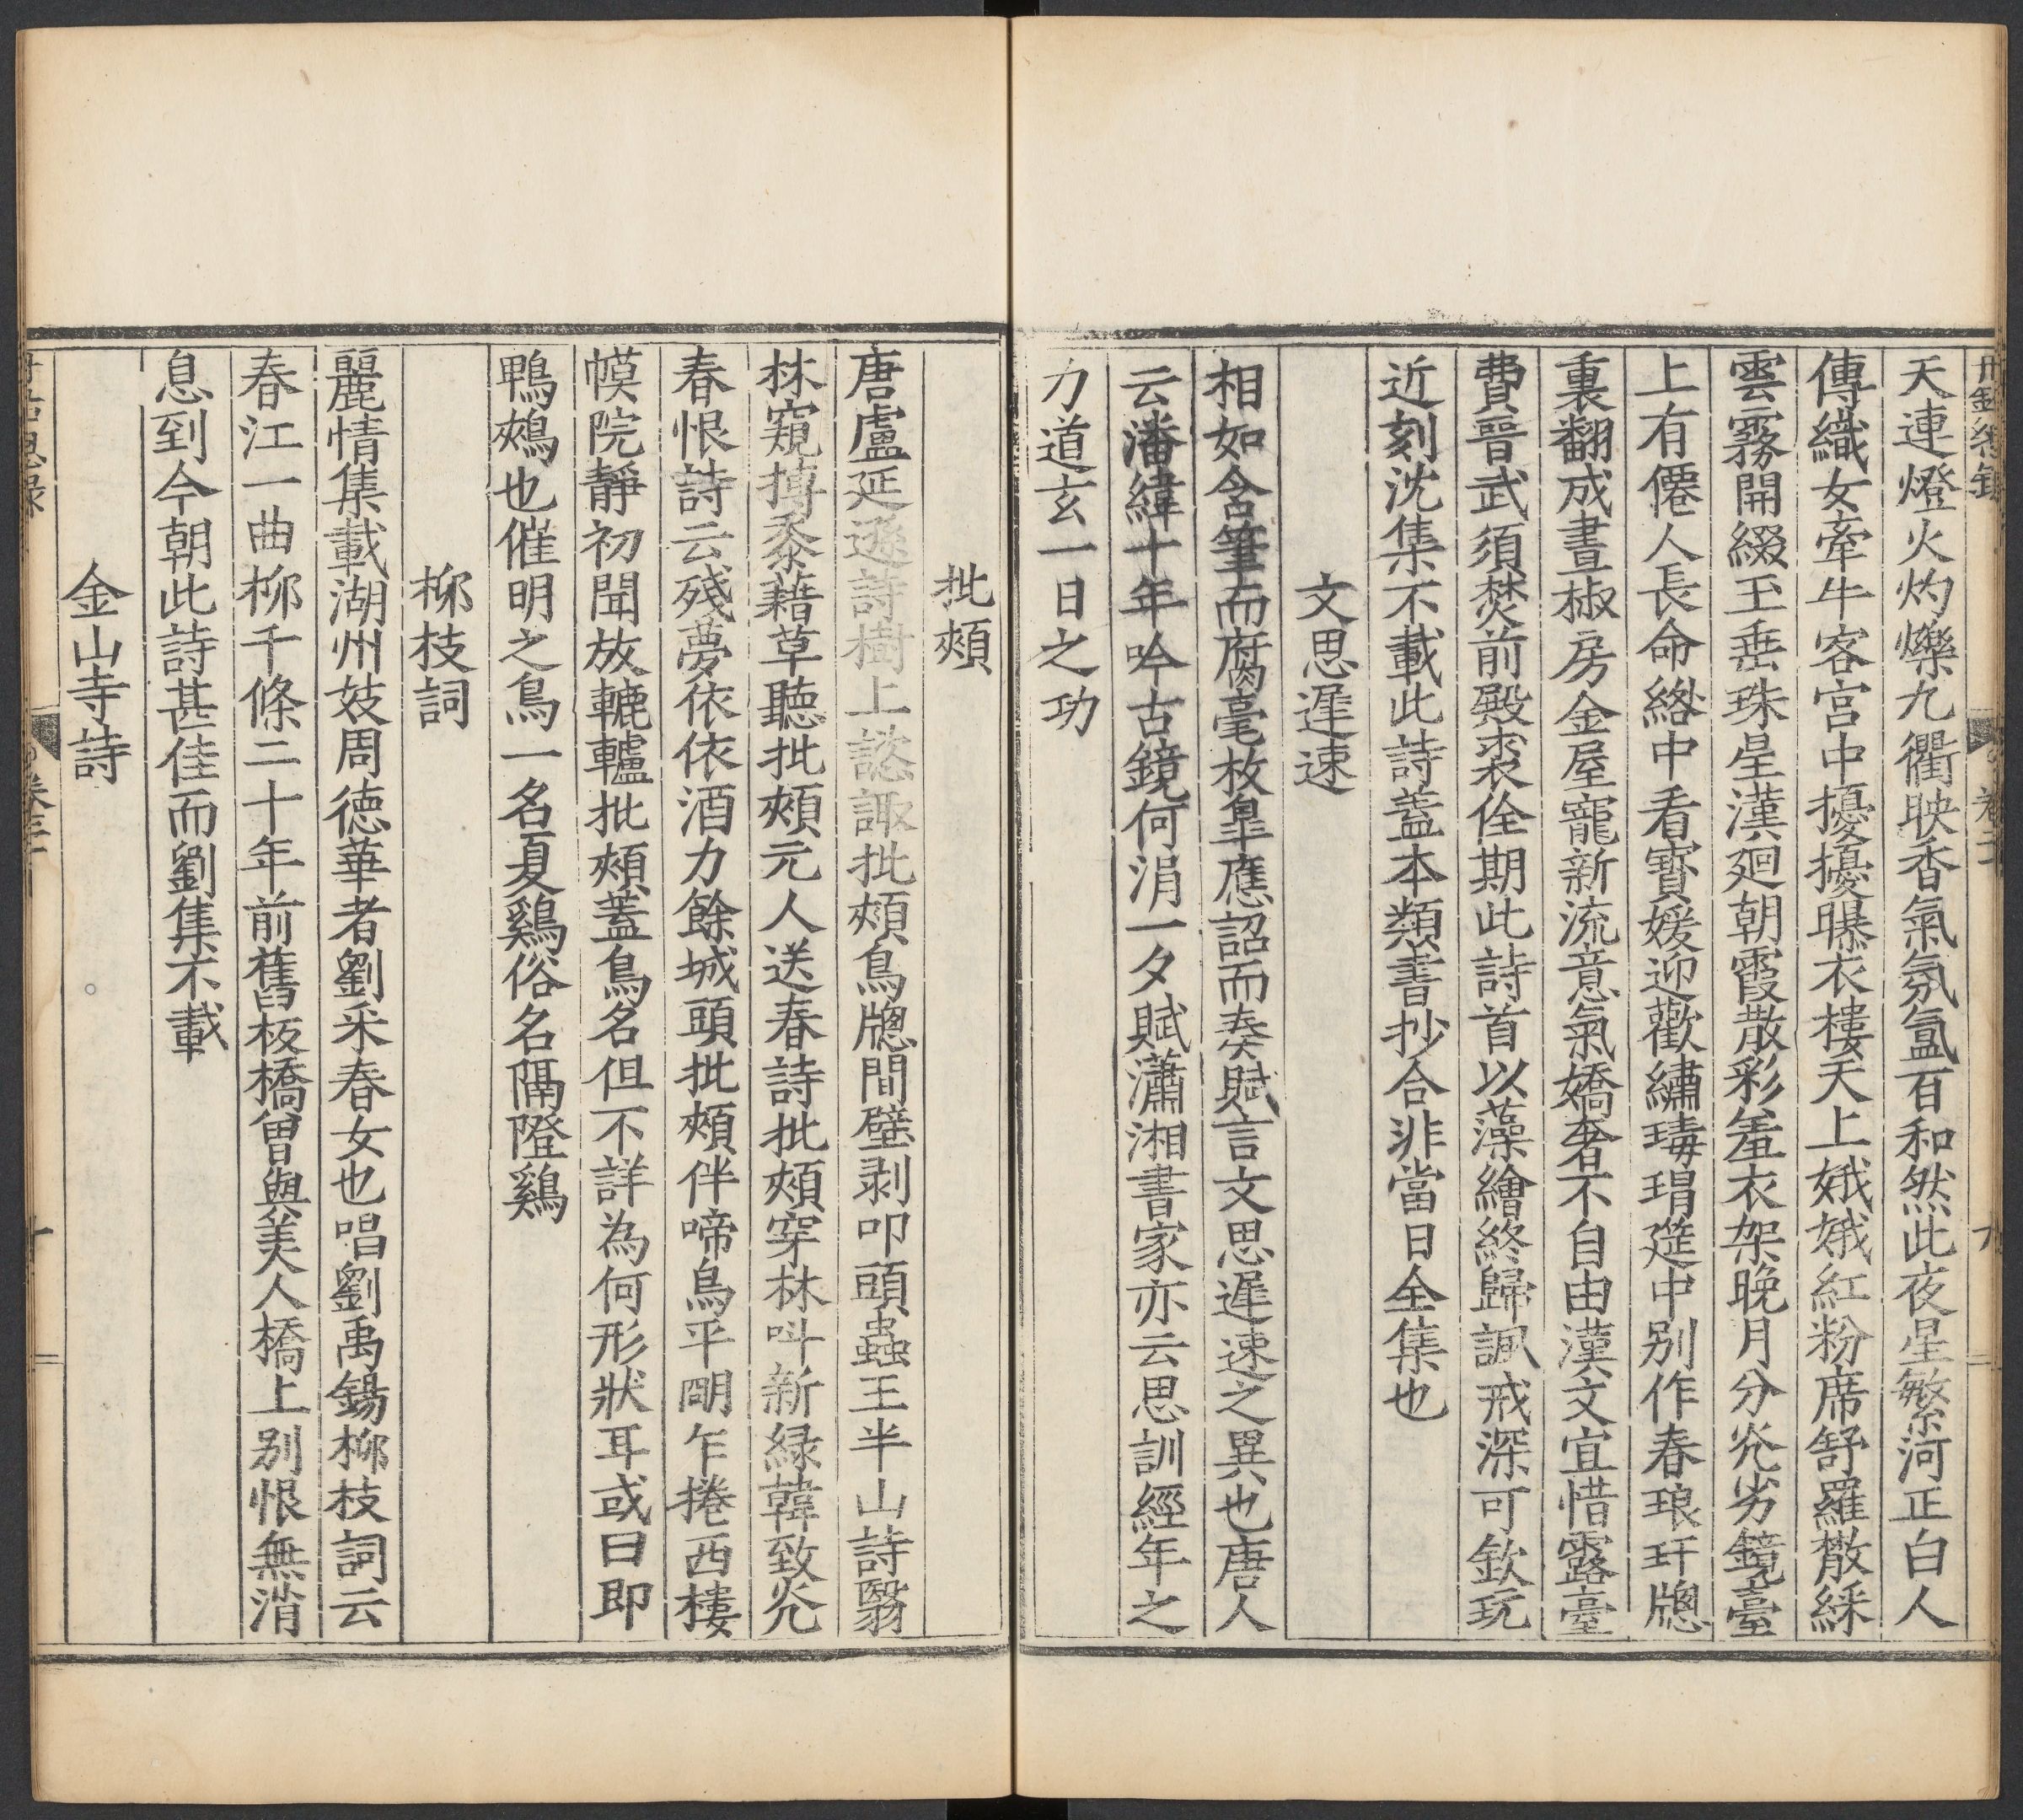 丹鉛總錄 卷二 九
天連燈火灼爍九衢映香氣氛氳百和然此夜星繁河正白人
傳織女牽牛客宮中擾擾曝衣樓天上娥娥紅粉席舒羅散綵
雲霧開綴玉垂珠星漢廻朝霞散彩羞衣架晚月分光劣鏡臺
上有僊人長命綹中看寶媛迎歡繡瑇瑁筵中別作春琅玕牕
裏翻成晝椒房金屋寵新流意氣嬌奢不自由漢文宜惜露臺
費晉武須焚前殿裘佺期此詩首以藻繪終歸諷戒深可欽玩
近刻沈集不載此詩蓋本類書抄合非當日全集也
文思遲速
相如含筆而腐毫枚皐應詔而奏賦言文思遲速之異也唐人
云潘緯十年吟古鏡何涓一夕賦瀟湘書家亦云思訓經年之
力道玄一日之功
批頰
唐盧延遜詩樹上諮諏批頰鳥牕間壁剥叩頭蟲王半山詩翳
林窺搏黍藉草聽批頰元人送春詩批頰穿林呌新緑韓致光
春恨詩云殘夢依依酒力餘城頭批頰伴啼烏平明乍捲西樓
幙院靜初聞放轆轤批頰蓋鳥名但不詳為何形狀耳或曰即
鴨鴂也催明之鳥一名夏鷄俗名隔隥鷄
栁枝詞
麗情集載湖州妓周德華者劉采春女也唱劉禹錫栁枝詞云
春江一曲栁千條二十年前舊板橋曾與美人橋上别恨無消
息到今朝此詩甚佳而劉集不載
金山寺詩
卷 十